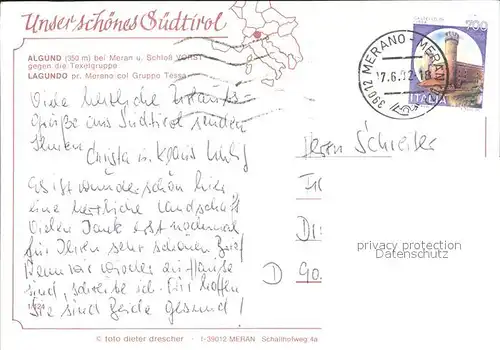 Unser schönes Südtirol
ALGUND (350 m) bei Meran u. Schloß VORST
gegen die Texelgruppe
LAGUNDO pr. Merano col Gruppo Tessa
700
ITALIA
39012 MERANO - MERAN
17.6.92-18
Viele herzliche Urlaubs-
Grüße aus Südtirol senden
Ihnen
Christa u. Klaus
Es ist wunderschön hier,
eine herrliche Landschaft
Vielen Dank erst nochmal
für Ihren sehr schönen Brief
Wenn wir wieder zu Hause
sind, schreibe ich. Wir hoffen
Sie sind beide gesund!
Herrn Schreiber
D
privacy protection
Datenschutz
© foto dieter drescher · I-39012 MERAN · Schallhofweg 4a